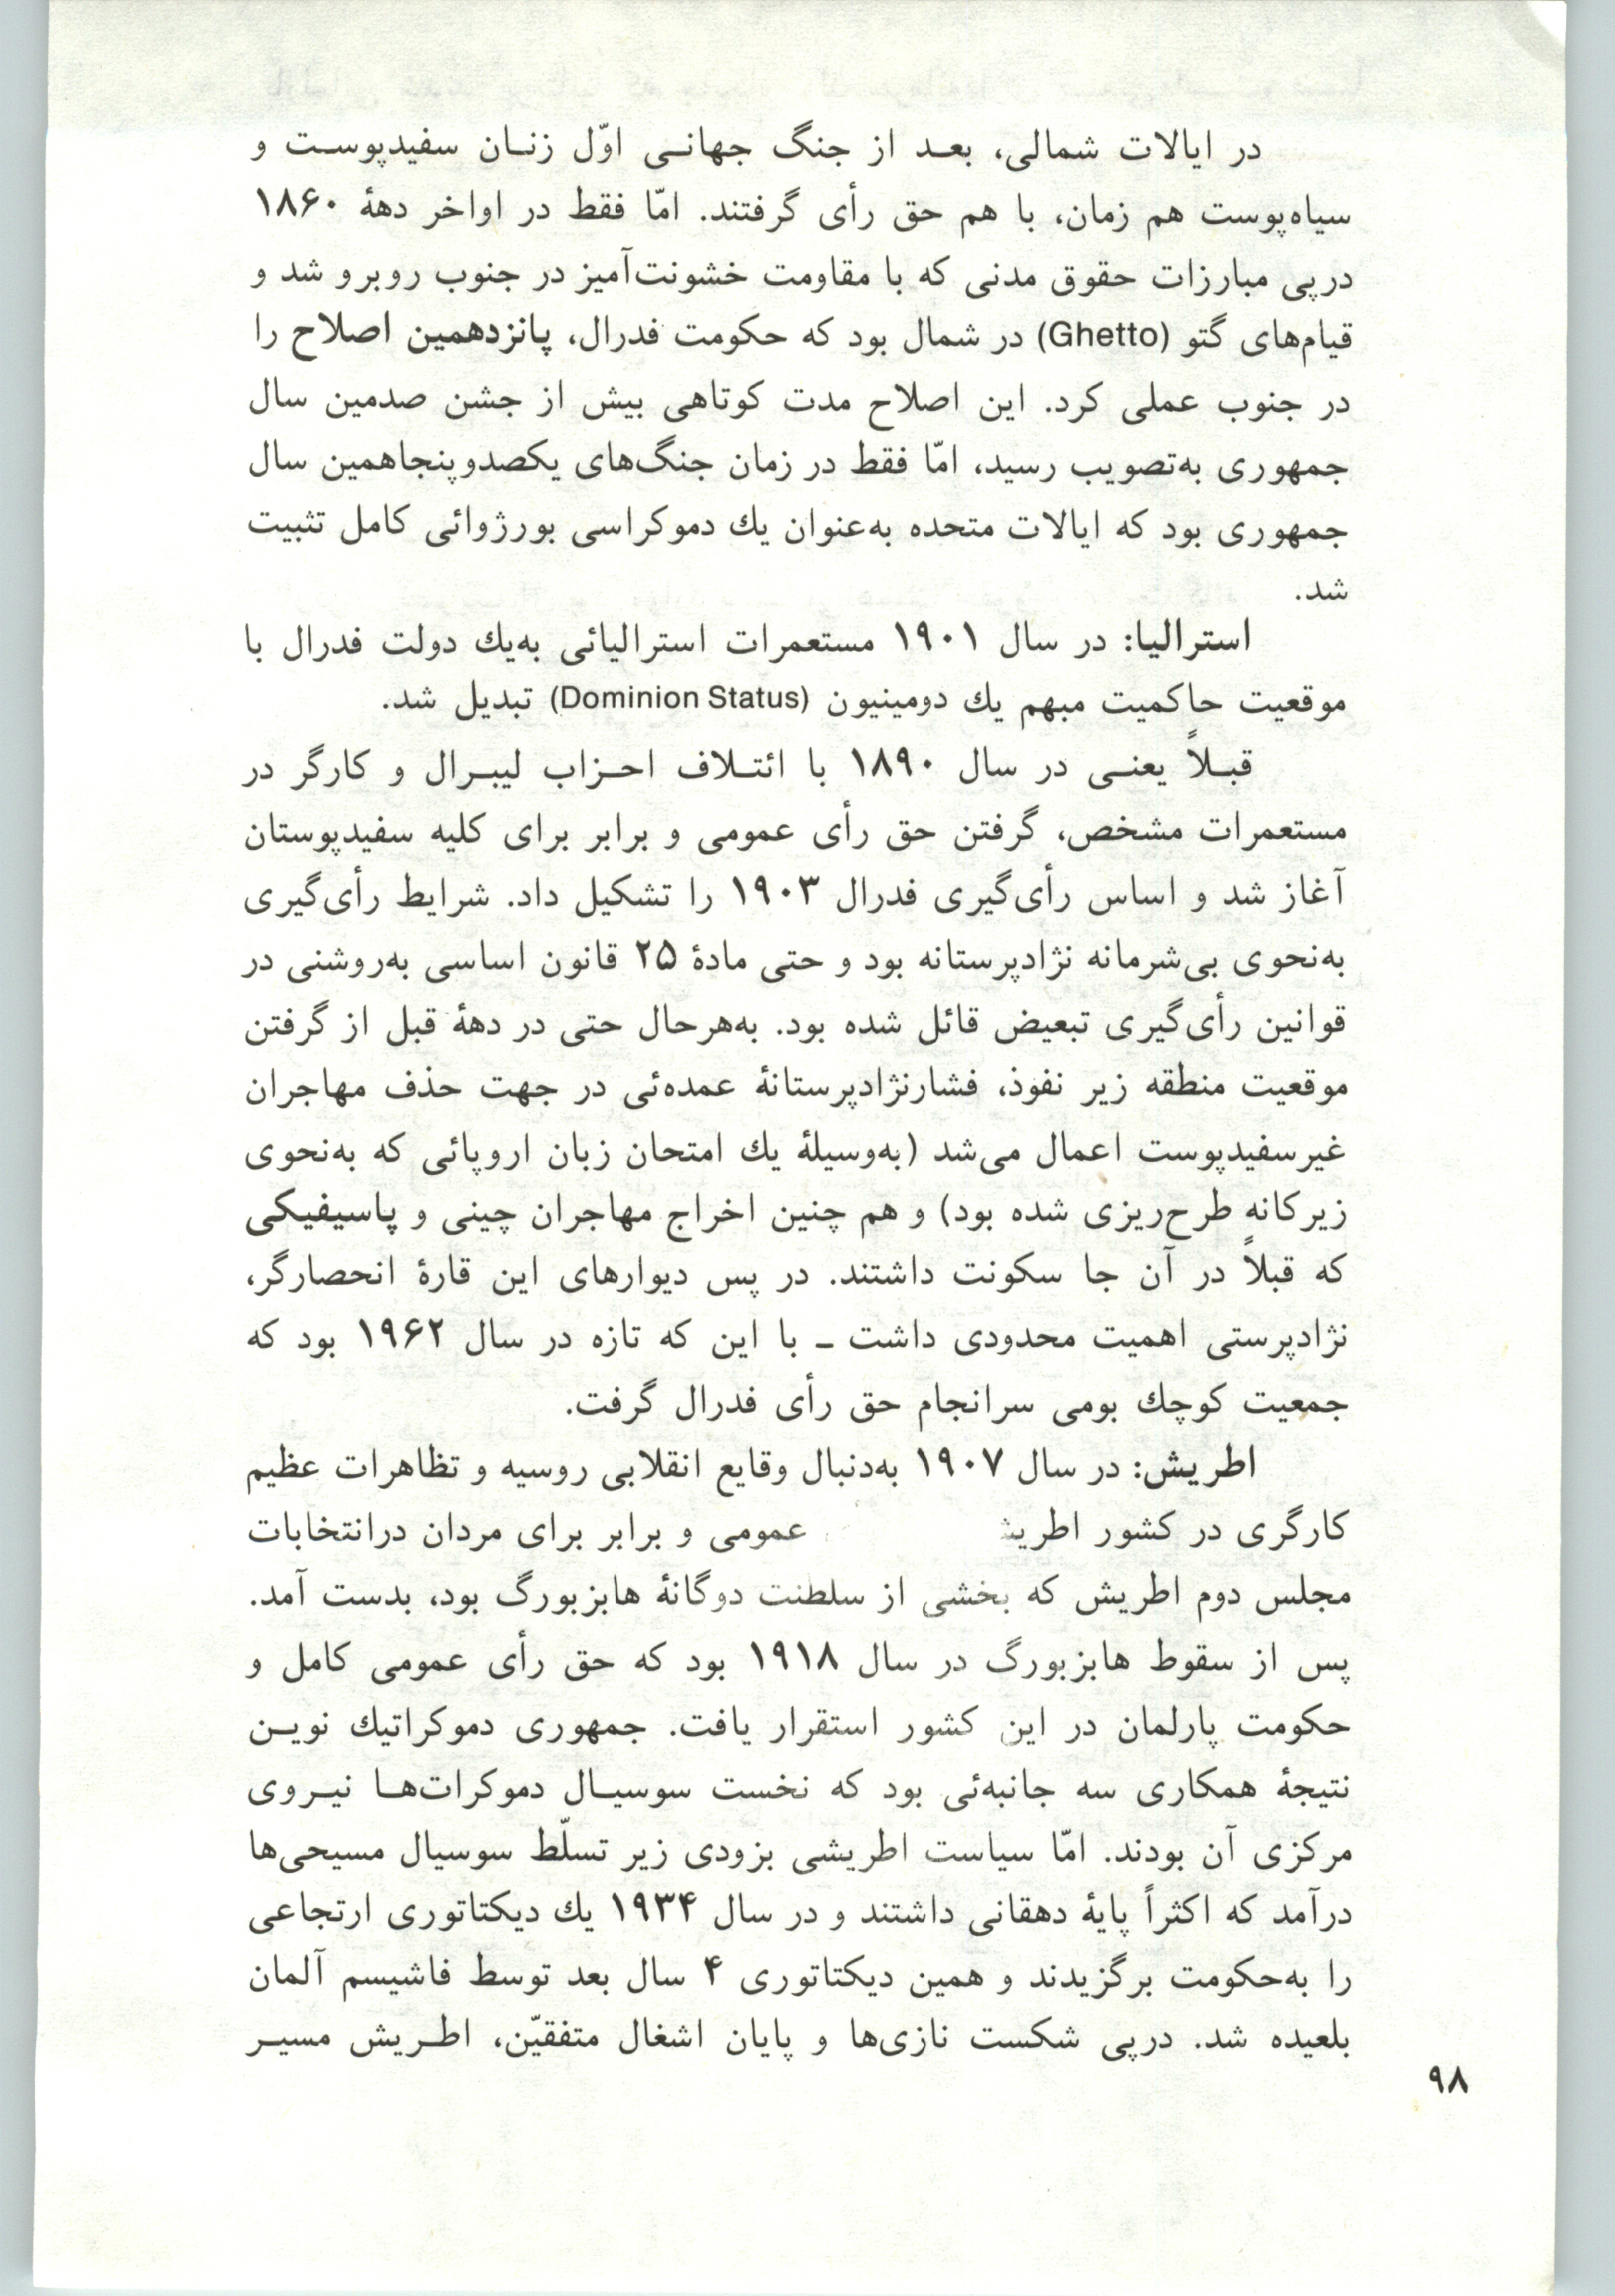 در ایالات شمالی، بعـد از جنگ جهانـی اوّل زنـان سفیدپوسـت و
سیاه‌پوست هم زمان، با هم حق رأی گرفتند. امّا فقط در اواخر دههٔ ۱۸۶۰
درپی مبارزات حقوق مدنی که با مقاومت خشونت‌آمیز در جنوب روبرو شد و
قیام‌های گتو (Ghetto) در شمال بود که حکومت فدرال، پانزدهمین اصلاح را
در جنوب عملی کرد. این اصلاح مدت کوتاهی بیش از جشن صدمین سال
جمهوری به‌تصویب رسید، امّا فقط در زمان جنگ‌های یکصدوپنجاهمین سال
جمهوری بود که ایالات متحده به‌عنوان یك دموکراسی بورژوائی کامل تثبیت
شد.
استرالیا: در سال ۱۹۰۱ مستعمرات استرالیائی به‌یك دولت فدرال با
موقعیت حاکمیت مبهم یك دومینیون (Dominion Status) تبدیل شد.
قبـلاً یعنـی در سال ۱۸۹۰ با ائتـلاف احـزاب لیبـرال و کارگر در
مستعمرات مشخص، گرفتن حق رأی عمومی و برابر برای کلیه سفیدپوستان
آغاز شد و اساس رأی‌گیری فدرال ۱۹۰۳ را تشکیل داد. شرایط رأی‌گیری
به‌نحوی بی‌شرمانه نژادپرستانه بود و حتی مادهٔ ۲۵ قانون اساسی به‌روشنی در
قوانین رأی‌گیری تبعیض قائل شده بود. به‌هرحال حتی در دههٔ قبل از گرفتن
موقعیت منطقه زیر نفوذ، فشارنژادپرستانهٔ عمده‌ئی در جهت حذف مهاجران
غیرسفیدپوست اعمال می‌شد (به‌وسیلهٔ یك امتحان زبان اروپائی که به‌نحوی
زیرکانه طرح‌ریزی شده بود) و هم چنین اخراج مهاجران چینی و پاسیفیکی
که قبلاً در آن جا سکونت داشتند. در پس دیوارهای این قارهٔ انحصارگر،
نژادپرستی اهمیت محدودی داشت ـ با این که تازه در سال ۱۹۶۲ بود که
جمعیت کوچك بومی سرانجام حق رأی فدرال گرفت.
اطریش: در سال ۱۹۰۷ به‌دنبال وقایع انقلابی روسیه و تظاهرات عظیم
کارگری در کشور عمومی و برابر برای مردان درانتخابات
مجلس دوم اطریش که بخشی از سلطنت دوگانهٔ هابزبورگ بود، بدست آمد.
پس از سقوط هابزبورگ در سال ۱۹۱۸ بود که حق رأی عمومی کامل و
حکومت پارلمان در این کشور استقرار یافت. جمهوری دموکراتیك نویـن
نتیجهٔ همکاری سه جانبه‌ئی بود که نخست سوسیـال دموکرات‌هـا نیـروی
مرکزی آن بودند. امّا سیاست اطریشی بزودی زیر تسلّط سوسیال مسیحی‌ها
درآمد که اکثراً پایهٔ دهقانی داشتند و در سال ۱۹۳۴ یك دیکتاتوری ارتجاعی
را به‌حکومت برگزیدند و همین دیکتاتوری ۴ سال بعد توسط فاشیسم آلمان
بلعیده شد. درپی شکست نازی‌ها و پایان اشغال متفقیّن، اطـریش مسیـر
۹۸